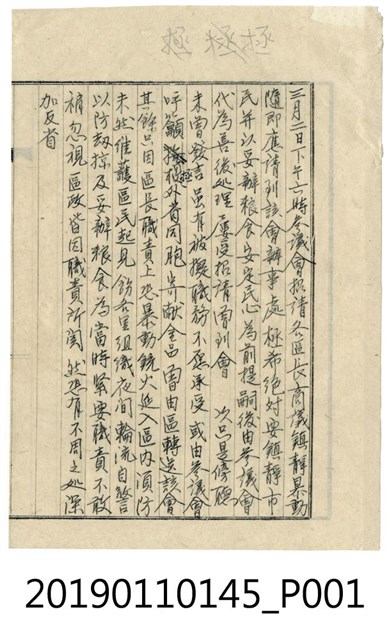 極 極 極
三月三日下午六時參議會招請各區長商議鎮靜暴動
隨即應請到該會辦事處極希絕對安鎮靜市
民并以妥辦粮食安定民心為前提嗣後由參議會
代為善後處理 受招請曾到會 次只是傍聽
未曾發言虽有被擬職務不應承受或由參議會
呼籲 極外省同胞 獻金品曾由區轉送該會
其餘只因區長職責上恐暴動銃火延入區內須防
未然維護區民起見飭各里組織夜間輪流自警
以防刼掠及妥辦粮食為當時緊要職責不敢
稍忽視區政皆因職責所関 然恐有不周之処深
加反省
20190110145_P001